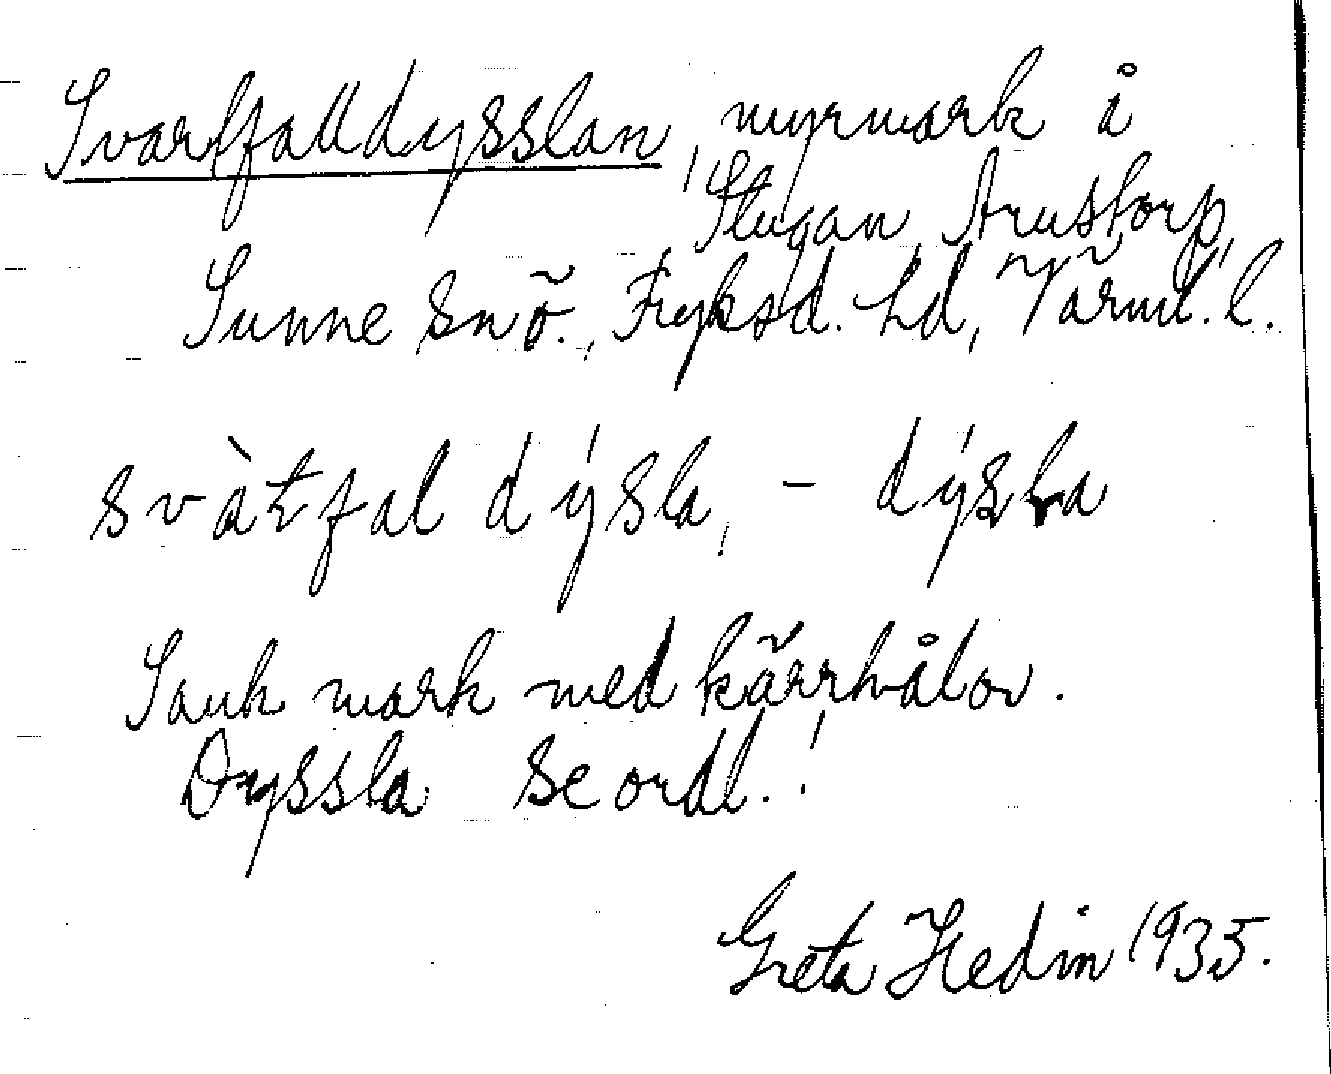 Svartfalldysslan, myrmark å
Stugan, Arnstorp,
Sunne snö., Fryksd. hd, Värml. l.
svàtfal dýsla, – dýsla
Sank mark med kärrhålor.
Dyssla se ordl.!
Greta Hedin 1935.